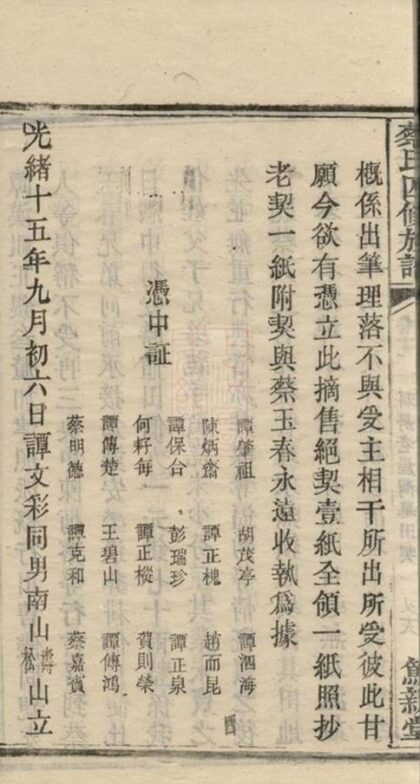 蔡氏四修族譜
概係出筆理落不與受主相干所出所受彼此甘
願今欲有憑立此摘售絕契壹紙全領一紙照抄
老契一紙附契與蔡玉春永遠收執爲據
譚肇祖 胡茂亭 譚泗海
陳炳齋 譚正槐 趙而昆
譚保合 彭瑞珍 譚正泉
憑中証
何籽每 譚正樅 賀則榮
譚傳楚 王碧山 譚傳鴻
蔡明德 譚克和 蔡嘉賓
光緒十五年九月初六日譚文彩同男南山壽松山立